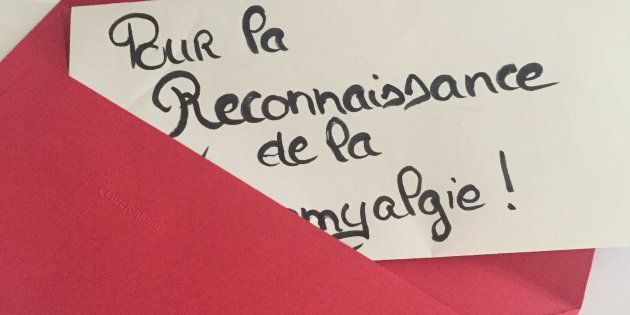 POUR la
Reconnaissance
de la
myalgie !